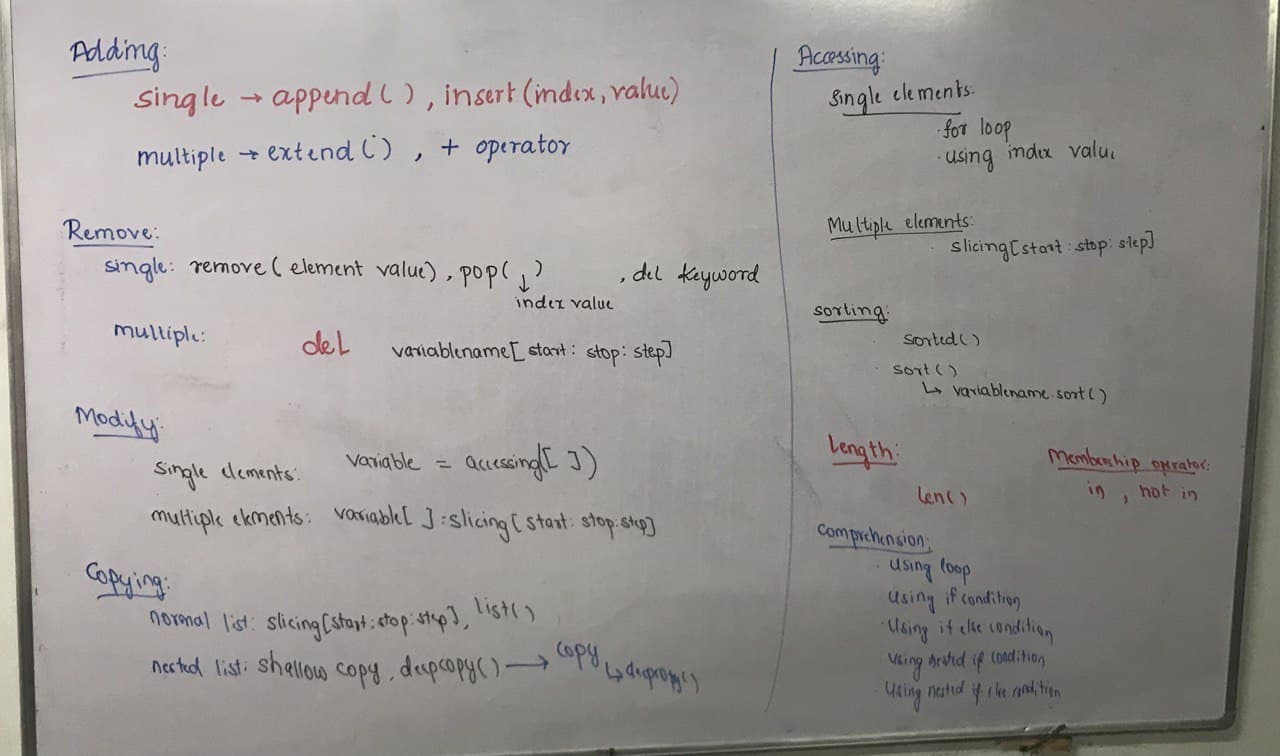 Adding:
single → append( ) , insert(index, value)
multiple → extend( ) , + operator
Remove:
single: remove( element value) , pop( ↓ ) , del keyword
index value
multiple: del variablename[ start: stop: step]
Modify:
single elements: variable = accessing([ ])
multiple elements: variable[ ] = slicing[start: stop:step]
Copying:
normal list: slicing[start:stop:step], list( )
nested list: shallow copy, deepcopy( ) → copy
↳ deepcopy( )
Accessing:
single elements:
· for loop
· using index value
Multiple elements:
· slicing[start: stop: step]
sorting:
sorted( )
· sort( )
↳ variablename.sort( )
Length:
len( )
Membership operator:
in , not in
Comprehension:
· using loop
using if condition
· Using if else condition
using nested if condition
· Using nested if else condition